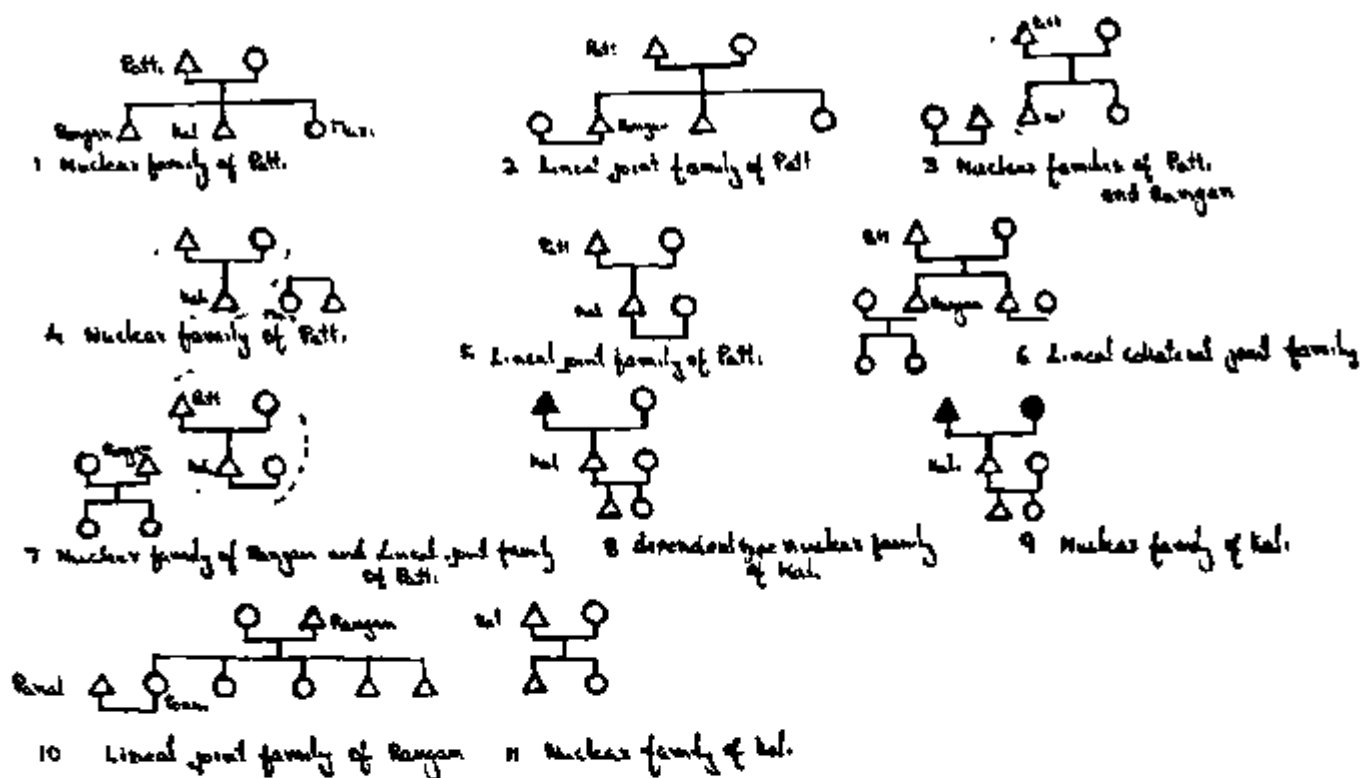 Patt.
Rangan Kal Mar.
1 Nuclear family of Patt.
Patt
Rangan
2 Lineal joint family of Patt
Patt
Kal
3 Nuclear families of Patt.
and Rangan
Kal.
4 Nuclear family of Patt.
Patt
Kal
5 Lineal joint family of Patt.
Patt
Rangan
6 Lineal collateral joint family
Patt
Rangan Kal.
7 Nuclear family of Rangan and Lineal joint family
of Patt.
Kal
8 dependent type nuclear family
of Kal.
Kal.
9 Nuclear family of Kal.
Rangan
10 Lineal joint family of Rangan
Kal
11 Nuclear family of Kal.